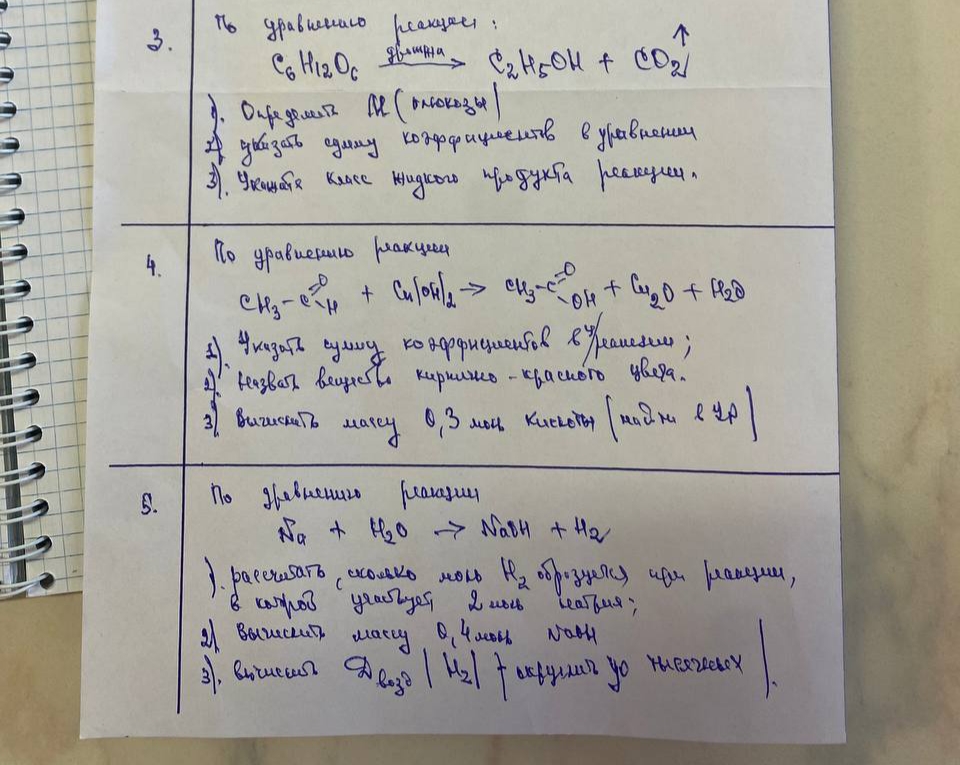 3. По уравнению реакции:
C6H12O6 дрожжи → C2H5OH + CO2↑
1). Определить M (глюкозы)
2) указать сумму коэффициентов в уравнении
3). Укажите класс жидкого продукта реакции.
4. По уравнению реакции
CH3-C=O-H + Cu(OH)2 → CH3-C=O-OH + Cu2O + H2O
1). Указать сумму коэффициентов в у/реакции;
2). Назвать вещество кирпично-красного цвета.
3) Вычислить массу 0,3 моль кислоты (найти в УР)
5. По уравнению реакции
Na + H2O → NaOH + H2
1). рассчитать, сколько моль H2 образуется при реакции,
в которой участвует 2 моль натрия;
2) Вычислить массу 0,4 моль NaOH
3). вычислить Dвозд (H2) округлить до тысячных).